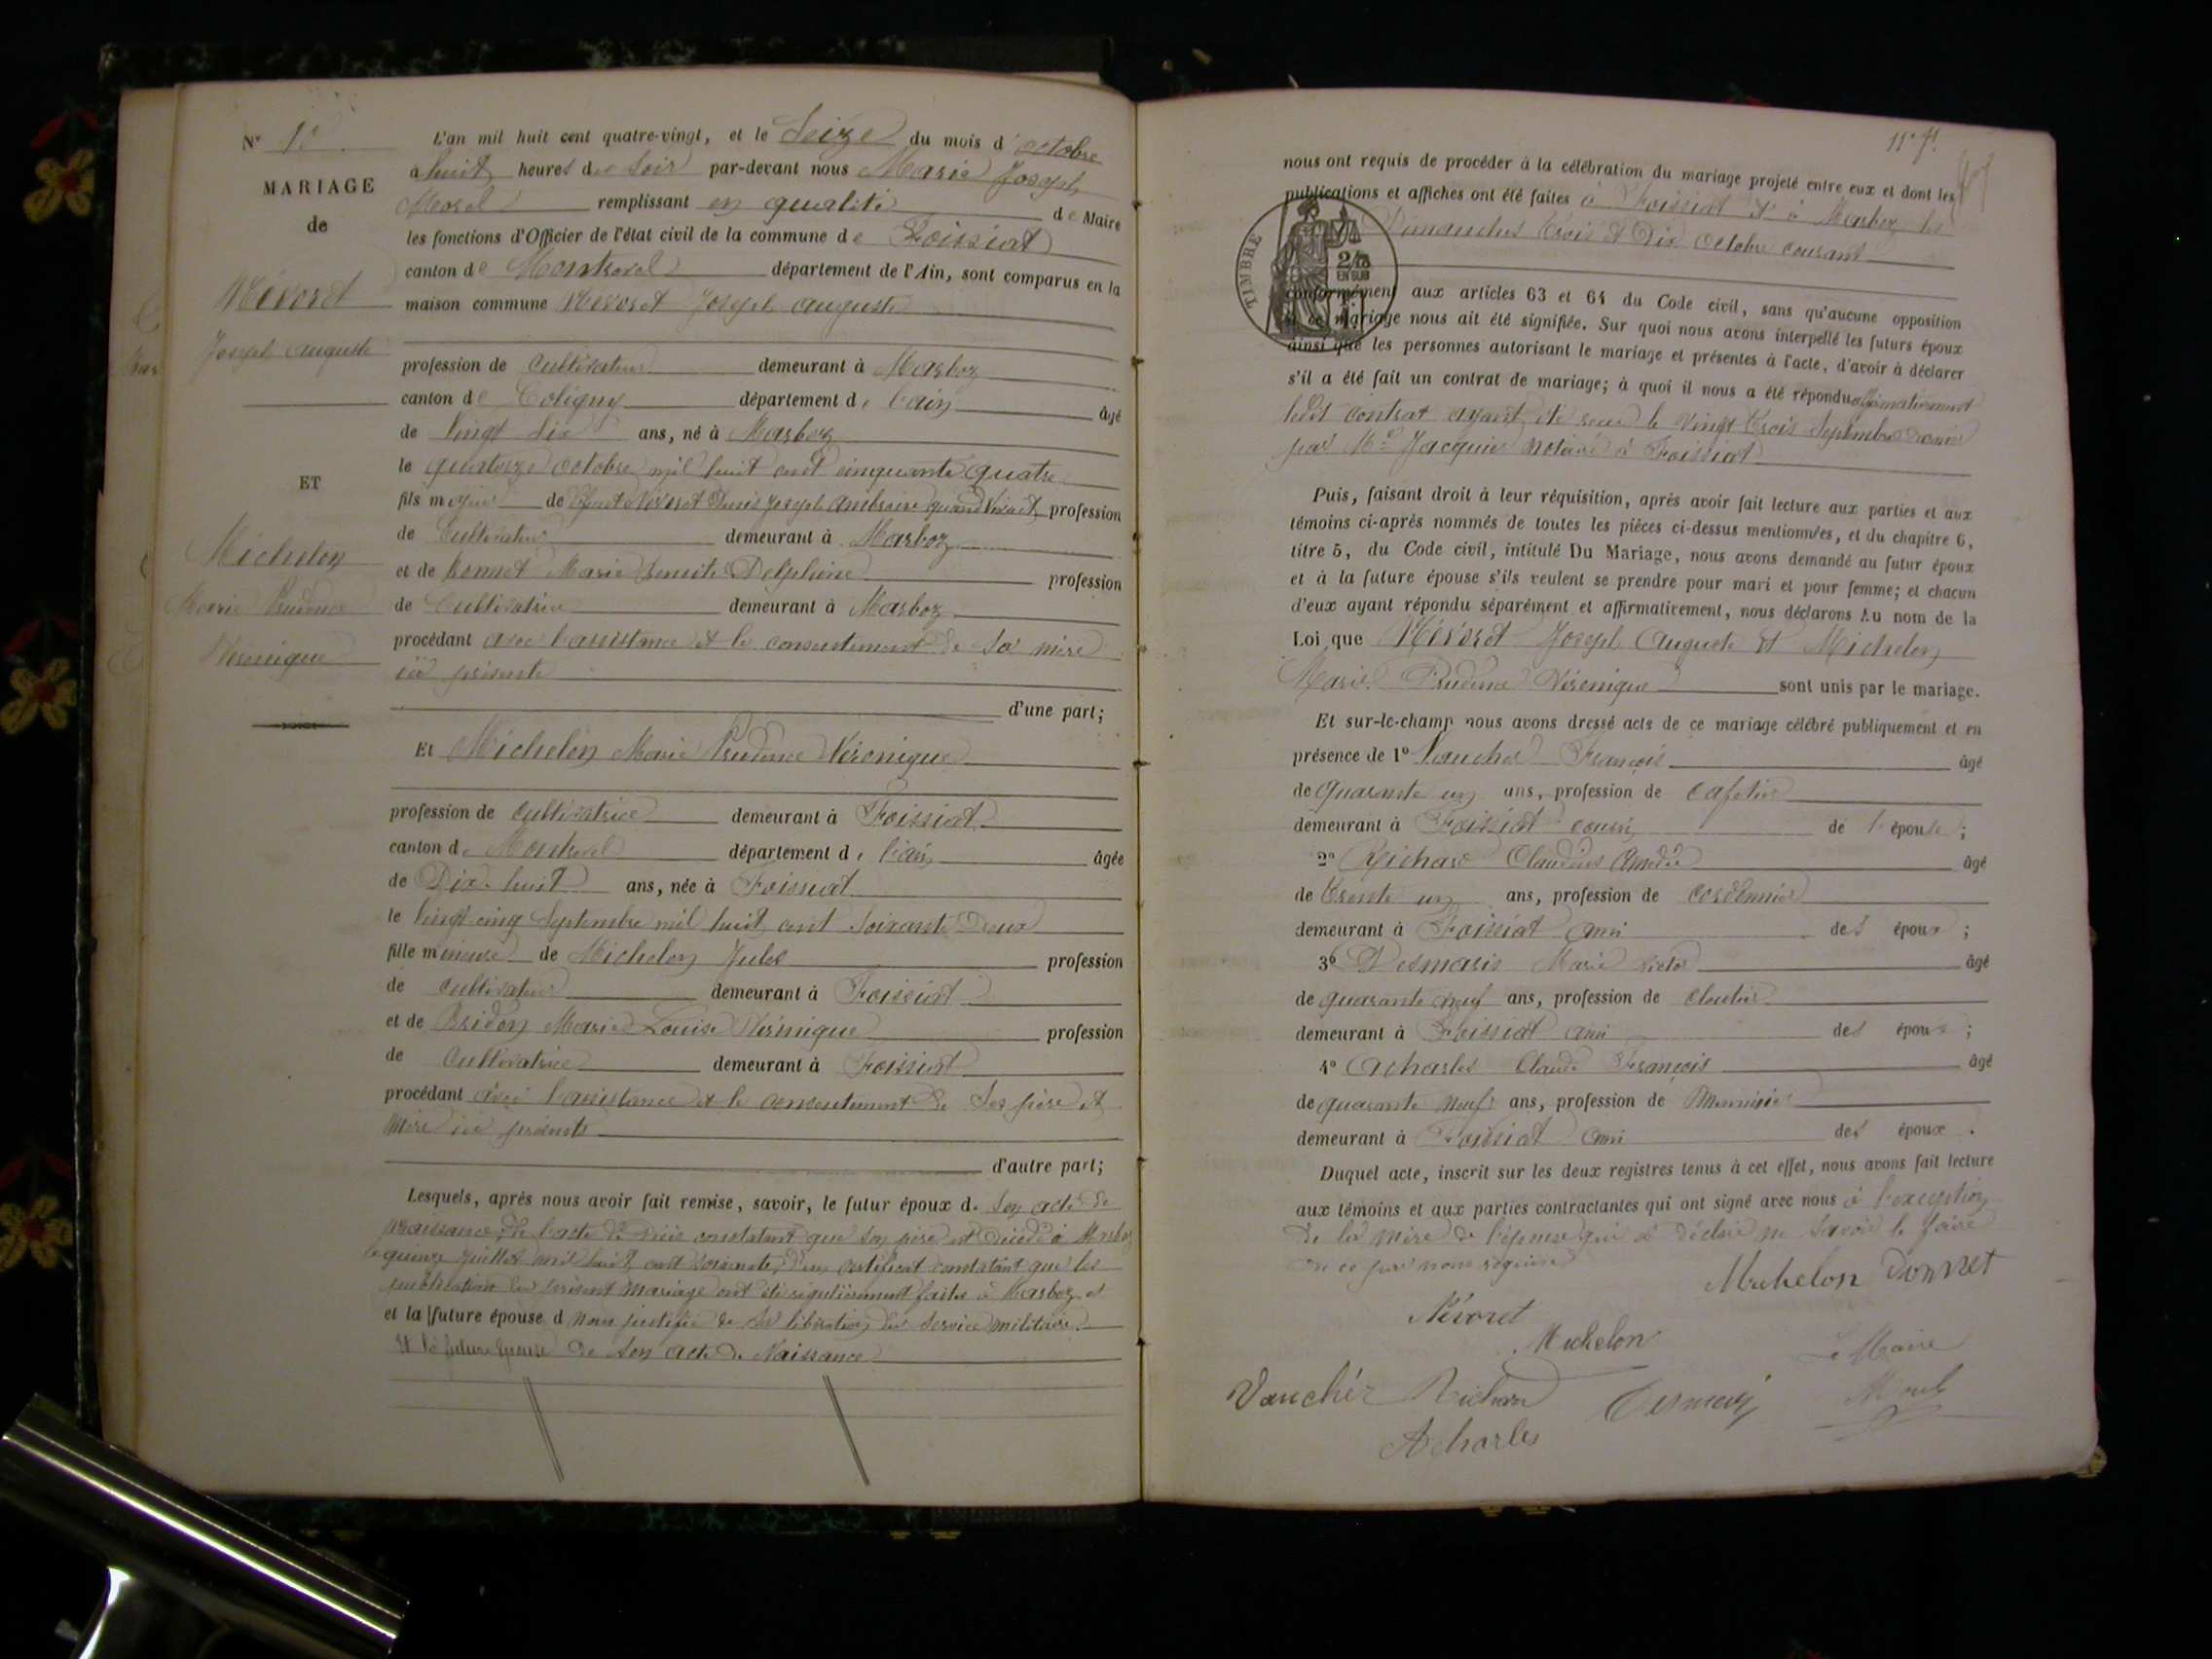 N° 10
MARIAGE
de
Névoret
Joseph Auguste
ET
Michelon
Marie Prudence
Véronique
L'an mil huit cent quatre-vingt, et le Seize du mois d'octobre
à huit heures du Soir par-devant nous Marie Joseph
Morel remplissant en qualité de Maire
les fonctions d'Officier de l'état civil de la commune de Foissiat
canton de Montrevel département de l'Ain, sont comparus en la
maison commune Névoret Joseph Auguste
profession de cultivateur demeurant à Marboz
canton de Coligny département de l'ain âgé
de Vingt Six ans, né à Marboz
le quatorze octobre mil huit cent cinquante quatre
fils majeur de défunt Névoret Denis Joseph quand Vivait profession
de Cultivateur demeurant à Marboz
et de Donnet Marie Benoite Delphine profession
de Cultivatrice demeurant à Marboz
procédant avec l'assistance et le consentement de Sa mère
ici présente
d'une part;
Et Michelon Marie Prudence Véronique
profession de cultivatrice demeurant à Foissiat
canton de Montrevel département de l'ain âgée
de Dix-huit ans, née à Foissiat
le Vingt cinq Septembre mil huit cent Soixante Deux
fille mineure de Michelon Jules profession
de cultivateur demeurant à Foissiat
et de Bridon Marie Louise Véronique profession
de Cultivatrice demeurant à Foissiat
procédant avec l'assistance et le consentement de Ses père et
mère ici présents
d'autre part;
Lesquels, après nous avoir fait remise, savoir, le futur époux de Son acte de
naissance, de l'acte de Décès constatant que Son père est Décédé à Marboz
le quinze Juillet mil huit cent soixante, d'un certificat constatant que les
publication du présent mariage ont été régulièrement faites à Marboz et
et la future épouse d nous justifie de Sa libération du Service militaire.
Et la future épouse de Son acte de Naissance
11e ft
nous ont requis de procéder à la célébration du mariage projeté entre eux et dont les
publications et affiches ont été faites à Foissiat et à Marboz les
Dimanches trois et Dix Octobre courant
TIMBRE
2/10
EN SUS
conformément aux articles 63 et 64 du Code civil, sans qu'aucune opposition
à ce mariage nous ait été signifiée. Sur quoi nous avons interpellé les futurs époux
ainsi que les personnes autorisant le mariage et présentes à l'acte, d'avoir à déclarer
s'il a été fait un contrat de mariage; à quoi il nous a été répondu affirmativement
ledit contrat ayant été reçu le Vingt trois Septembre dernier
par Me Jacquier notaire à Foissiat
Puis, faisant droit à leur réquisition, après avoir fait lecture aux parties et aux
témoins ci-après nommés de toutes les pièces ci-dessus mentionnées, et du chapitre 6,
titre 5, du Code civil, intitulé Du Mariage, nous avons demandé au futur époux
et à la future épouse s'ils veulent se prendre pour mari et pour femme; et chacun
d'eux ayant répondu séparément et affirmativement, nous déclarons Au nom de la
Loi, que Névoret Joseph Auguste Et Michelon
Marie Prudence Véronique sont unis par le mariage.
Et sur-le-champ nous avons dressé acte de ce mariage célébré publiquement et en
présence de 1° Vaucher François âgé
de quarante un ans, profession de cafetier
demeurant à Foissiat cousin de l'épouse;
2° Richard Claudius Amédée âgé
de trente un ans, profession de cordonnier
demeurant à Foissiat ami des époux;
3° Desmaris Marie Victor âgé
de quarante neuf ans, profession de cloutier
demeurant à Foissiat ami des époux;
4° Acharles Claude François âgé
de quarante neuf ans, profession de Menuisier
demeurant à Foissiat ami des époux.
Duquel acte, inscrit sur les deux registres tenus à cet effet, nous avons fait lecture
aux témoins et aux parties contractantes qui ont signé avec nous à l'exception
de la mère de l'épouse qui a déclaré ne Savoir le faire
de ce par nous requise
Michelon Donnet
Névoret
Michelon
Le Maire
Vauchér Richard Desmaris Morel
Acharles